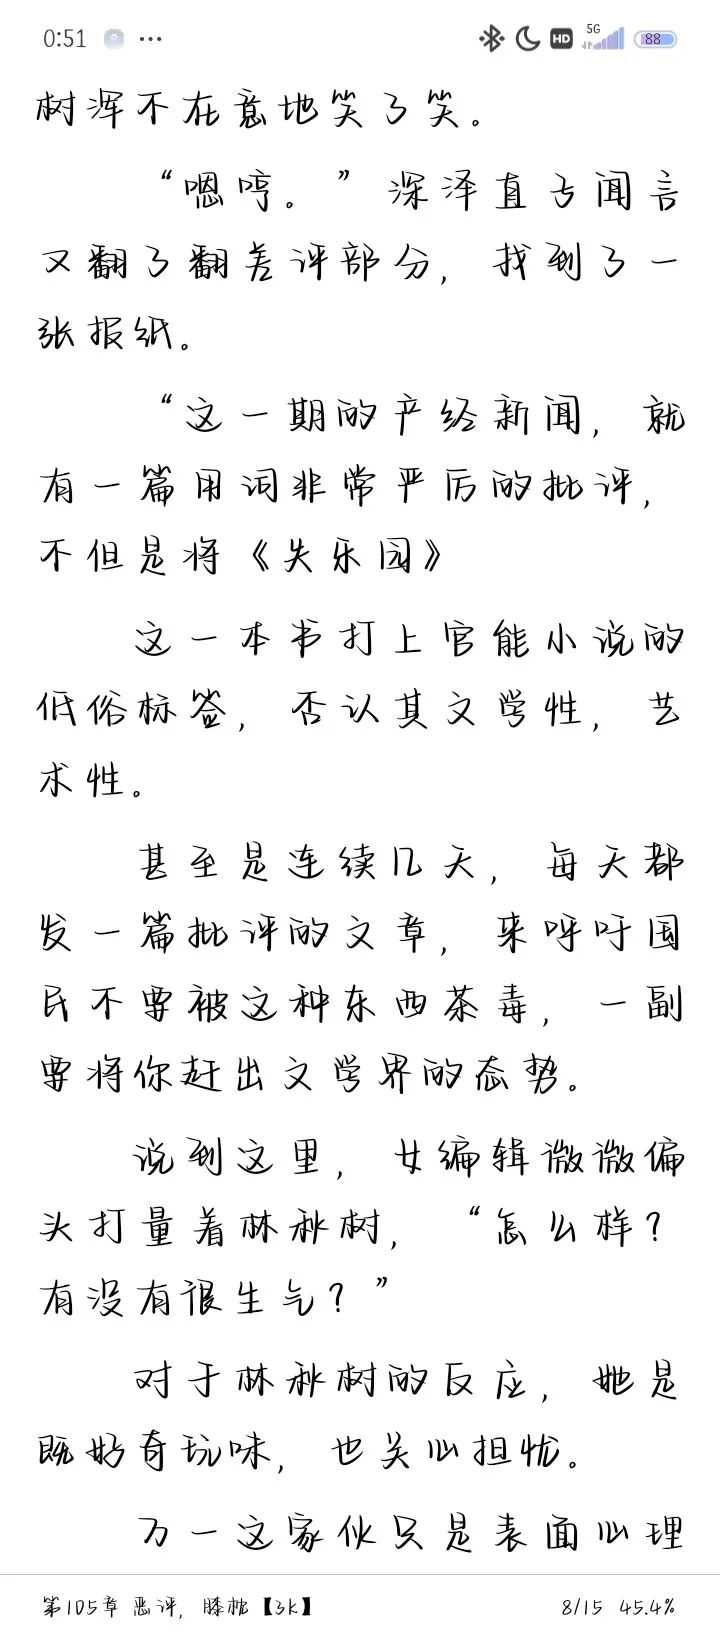 0:51 ... HD 5G 88
树浑不在意地笑了笑。
“嗯哼。”深泽直子闻言
又翻了翻差评部分，找到了一
张报纸。
“这一期的产经新闻，就
有一篇用词非常严厉的批评，
不但是将《失乐园》
这一本书打上官能小说的
低俗标签，否认其文学性，艺
术性。
甚至是连续几天，每天都
发一篇批评的文章，来呼吁国
民不要被这种东西荼毒，一副
要将你赶出文学界的态势。
说到这里，女编辑微微偏
头打量着林秋树，“怎么样？
有没有很生气？”
对于林秋树的反应，她是
既好奇玩味，也关心担忧。
万一这家伙只是表面心理
第105章 恶评，膝枕【3K】 8/15 45.4%